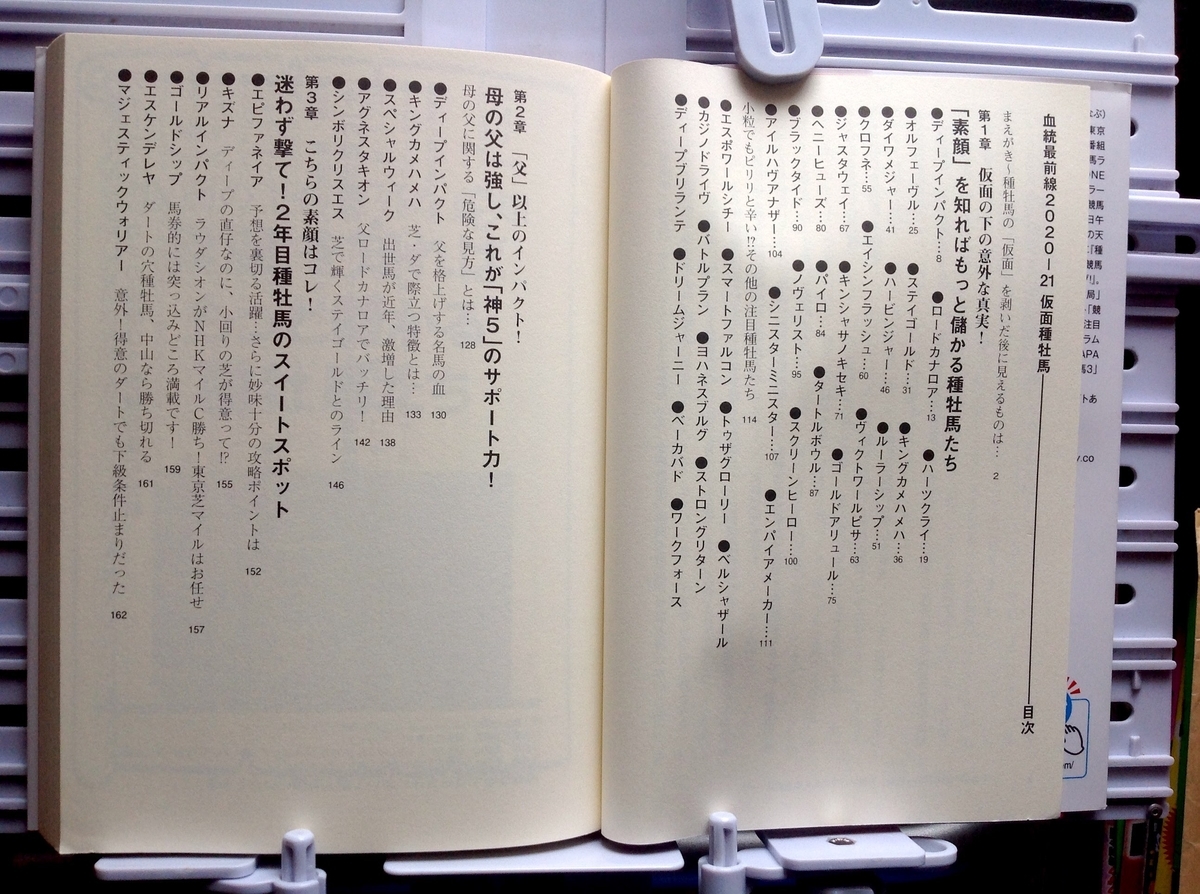 血統最前線2020―21 仮面種牡馬――目次
まえがき～種牡馬の「仮面」を剥いだ後に見えるものは… 2
第1章 仮面の下の意外な真実！
「素顔」を知ればもっと儲かる種牡馬たち
●ディープインパクト…8 ●ロードカナロア…13 ●ハーツクライ…19
●オルフェーヴル…25 ●ステイゴールド…31 ●キングカメハメハ…36
●ダイワメジャー…41 ●ハービンジャー…46 ●ルーラーシップ…51
●クロフネ…55 ●エイシンフラッシュ…60 ●ヴィクトワールピサ…63
●ジャスタウェイ…67 ●キンシャサノキセキ…71 ●ゴールドアリュール…75
●ヘニーヒューズ…80 ●パイロ…84 ●タートルボウル…87
●ブラックタイド…90 ●ノヴェリスト…95 ●スクリーンヒーロー…100
●アイルハヴアナザー…104 ●シニスターミニスター…107 ●エンパイアメーカー…111
小粒でもピリリと辛い!?その他の注目種牡馬たち 114
●エスポワールシチー ●スマートファルコン ●トゥザグローリー ●ベルシャザール
●カジノドライヴ ●バトルプラン ●ヨハネスブルグ ●ストロングリターン
●ディープブリランテ ●ドリームジャーニー ●ベーカバド ●ワークフォース
第2章 「父」以上のインパクト！
母の父は強し、これが「神5」のサポート力！
母の父に関する「危険な見方」とは… 128
●ディープインパクト 父を格上げする名馬の血 130
●キングカメハメハ 芝・ダで際立つ特徴とは… 133
●スペシャルウィーク 出世馬が近年、激増した理由 138
●アグネスタキオン 父ロードカナロアでバッチリ！ 142
●シンボリクリスエス 芝で輝くステイゴールドとのライン 146
第3章 こちらの素顔はコレ！
迷わず撃て！2年目種牡馬のスイートスポット
●エピファネイア 予想を裏切る活躍…さらに妙味十分の攻略ポイントは 152
●キズナ ディープの直仔なのに、小回りの芝が得意って!? 155
●リアルインパクト ラウダシオンがNHKマイルC勝ち！東京芝マイルはお任せ 157
●ゴールドシップ 馬券的には突っ込みどころ満載です！ 159
●エスケンデレヤ ダートの穴種牡馬、中山なら勝ち切れる 161
●マジェスティックウォリアー 意外！得意のダートでも下級条件止まりだった 162